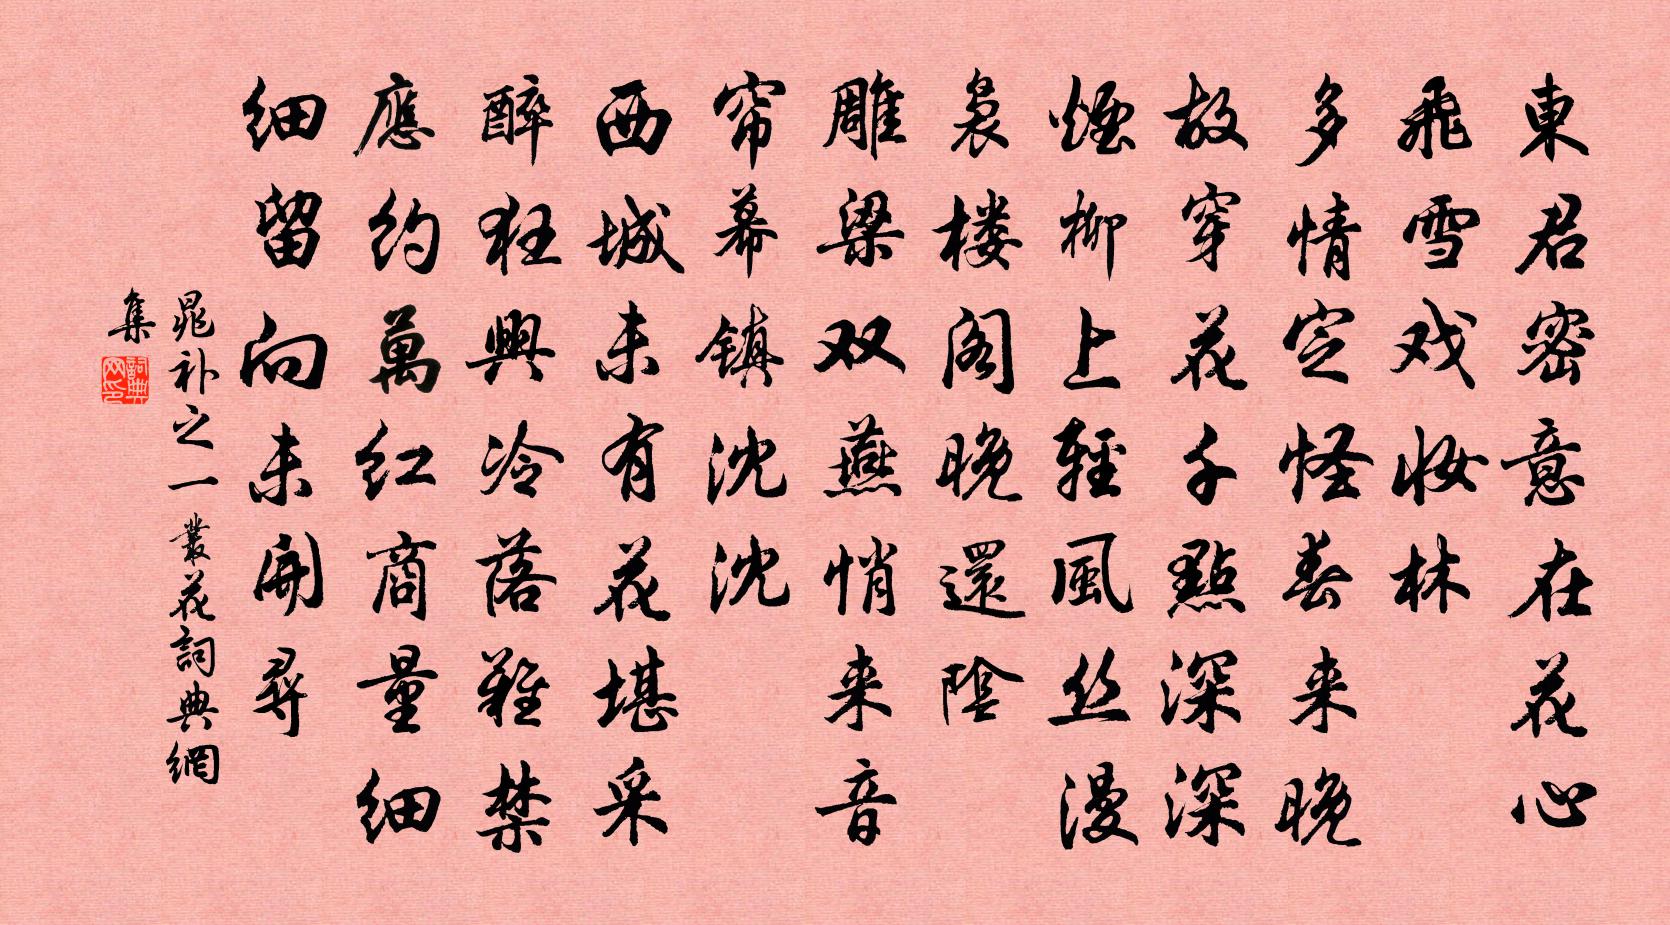 東君密意在花心
飛雪戏妆林
多情定怪春来晚
故穿花千點深深
煙柳上輕風丝漫
袅楼阁晚還陰
雕梁双燕悄来音
帘幕镇沈沈
西城未有花堪采
醉狂興冷落難禁
應约萬红商量细
细留向未開尋
晁补之一叢花詞典網
集
詞典网印